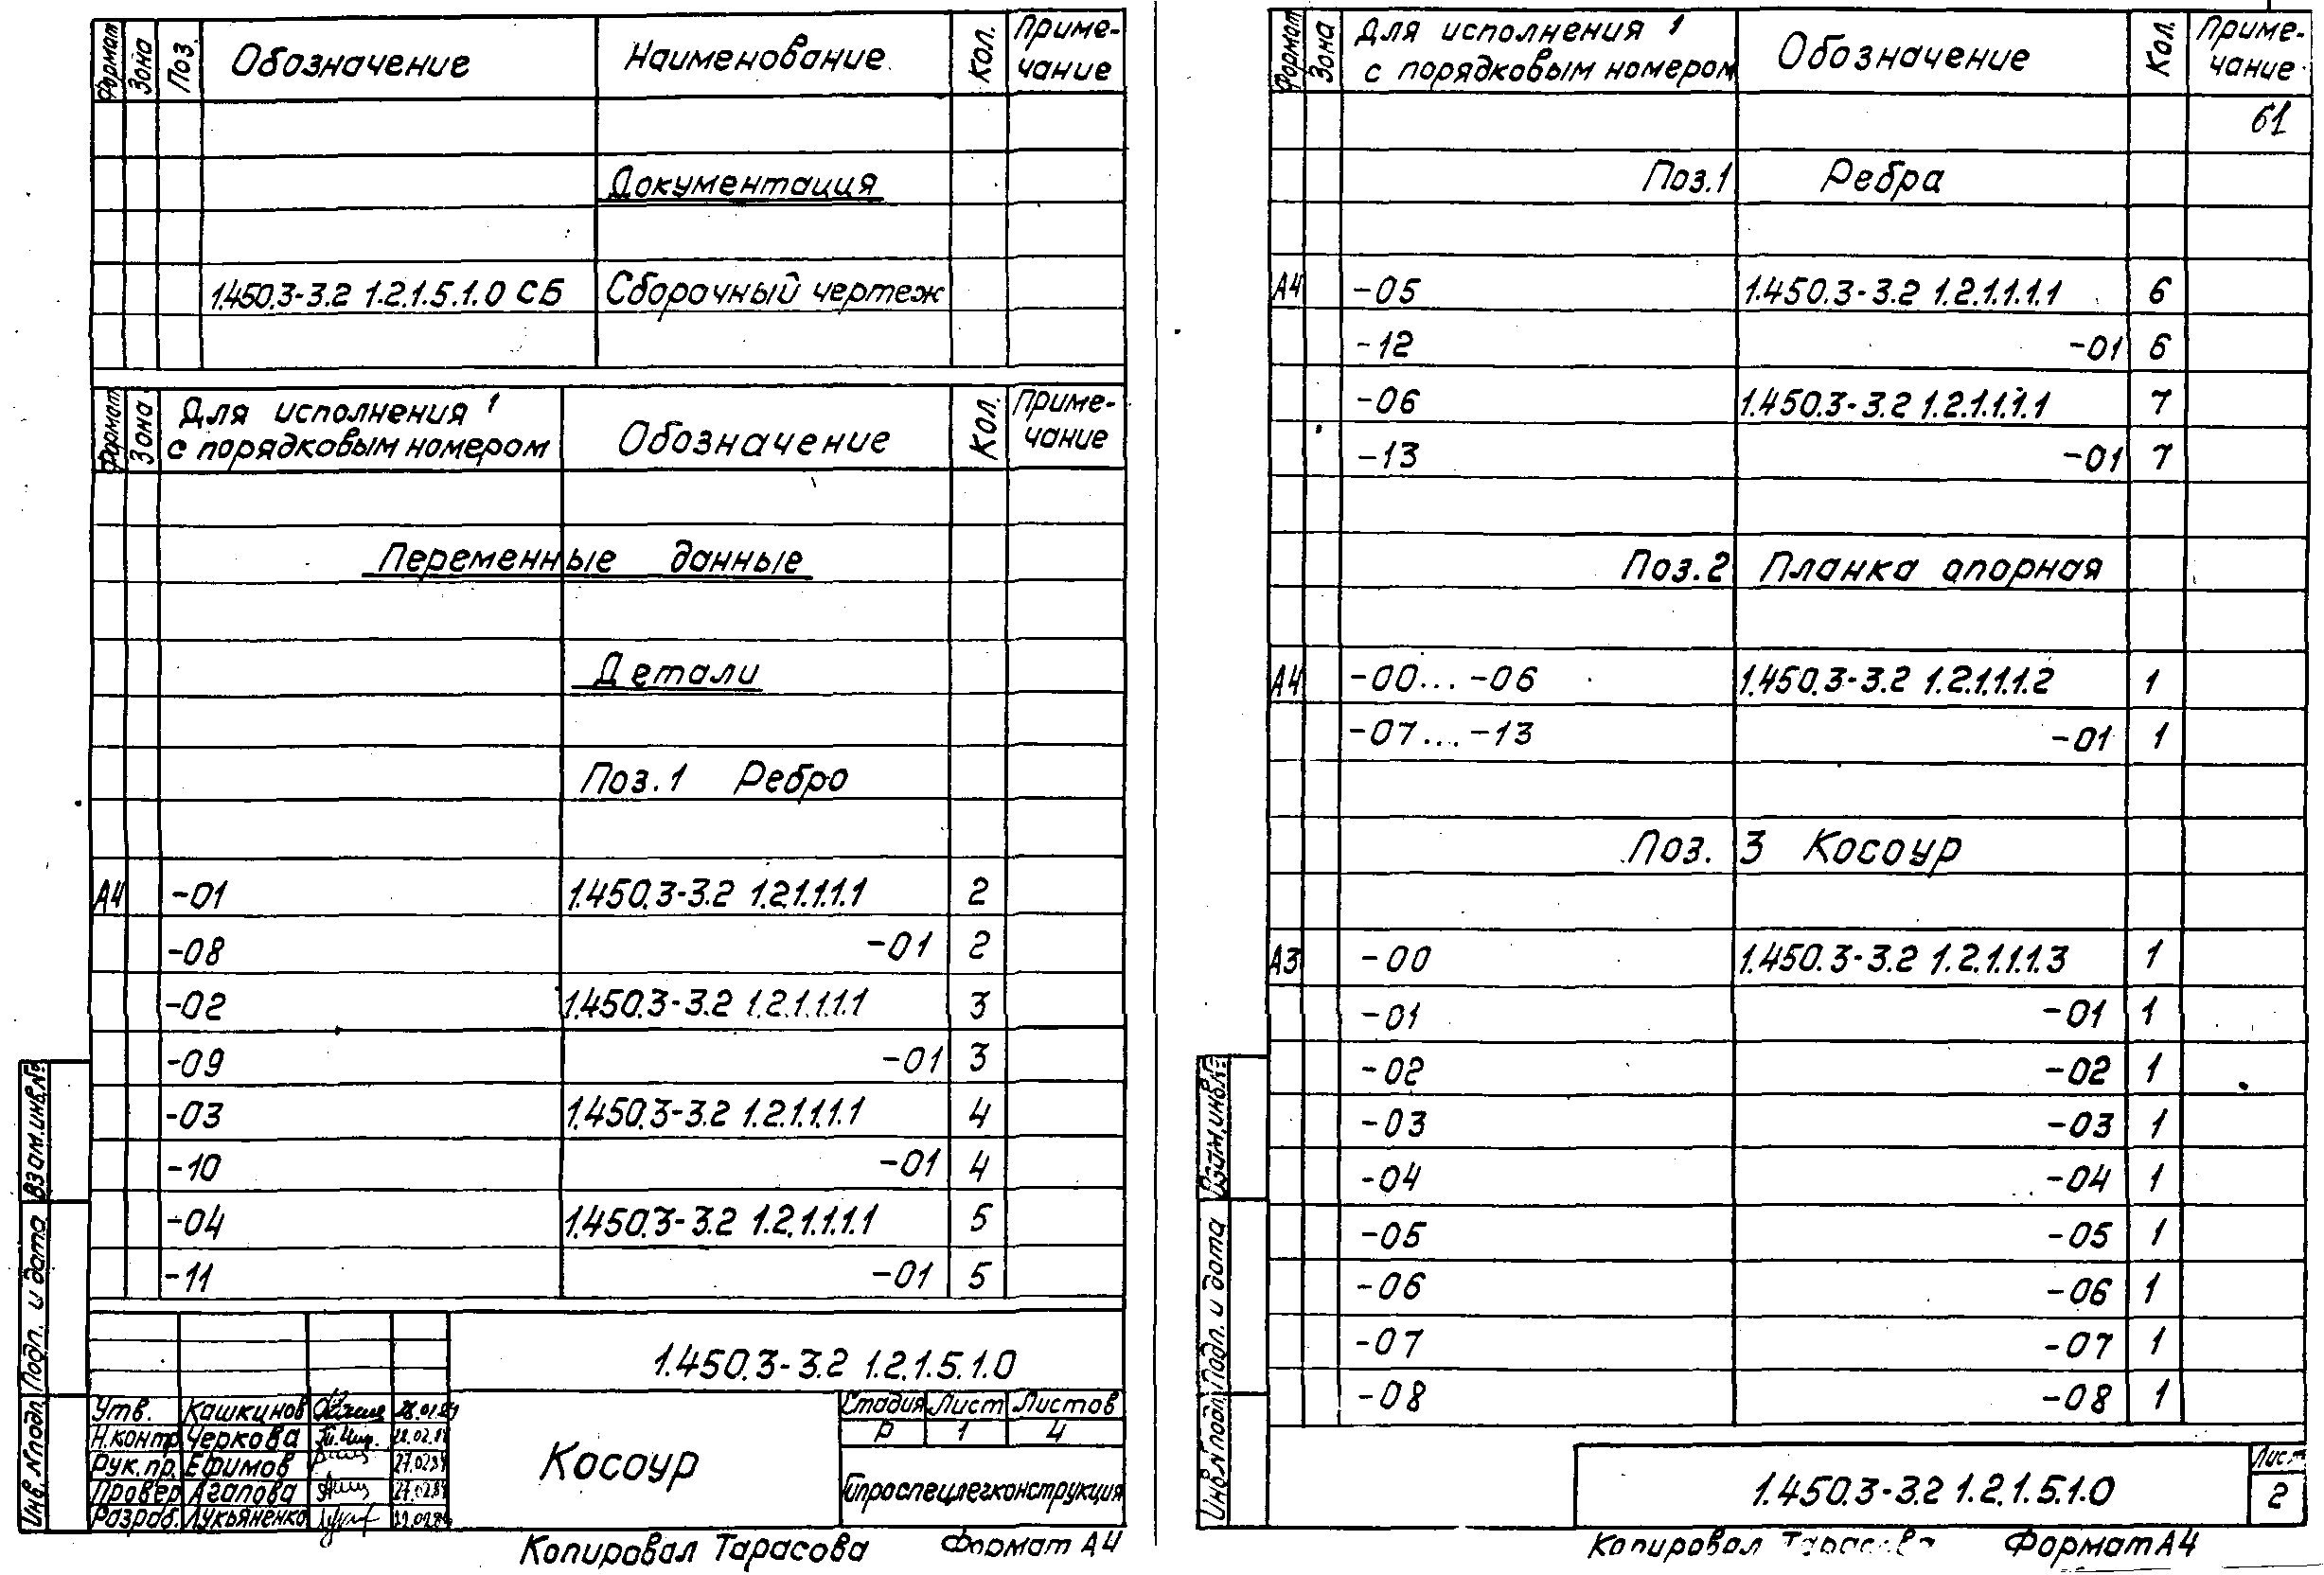 Формат Зона Поз. Обозначение Наименование Кол. Приме-
чание
Документация
1.450.3-3.2 1.2.1.5.1.0 СБ Сборочный чертеж
Формат Зона Для исполнения 1 Обозначение Кол. Приме-
с порядковым номером чание
Переменные данные
Детали
Поз. 1 Ребро
А4 -01 1.450.3-3.2 1.2.1.1.1.1 2
-08 -01 2
-02 1.450.3-3.2 1.2.1.1.1.1 3
-09 -01 3
-03 1.450.3-3.2 1.2.1.1.1.1 4
-10 -01 4
-04 1.450.3-3.2 1.2.1.1.1.1 5
-11 -01 5
1.450.3-3.2 1.2.1.5.1.0
Утв. Кашкинов
Н.контр. Черкова
Рук.пр. Ефимов 27.02.89
Провер Агапова 27.02.89
Разраб. Лукьяненко
Косоур
Стадия Лист Листов
Р 1 4
Гипроспецлегконструкция
Инв.№подл. Подп. и дата Взам.инв.№
Копировал Тарасова Формат А4
Формат Зона Для исполнения 1 Обозначение Кол. Приме-
с порядковым номером чание
61
Поз.1 Ребра
А4 -05 1.450.3-3.2 1.2.1.1.1.1 6
-12 -01 6
-06 1.450.3-3.2 1.2.1.1.1.1 7
-13 -01 7
Поз.2 Планка опорная
А4 -00... -06 1.450.3-3.2 1.2.1.1.1.2 1
-07... -13 -01 1
Поз. 3 Косоур
А3 -00 1.450.3-3.2 1.2.1.1.1.3 1
-01 -01 1
-02 -02 1
-03 -03 1
-04 -04 1
-05 -05 1
-06 -06 1
-07 -07 1
-08 -08 1
1.450.3-3.2 1.2.1.5.1.0
Лист
2
Инв.№подл. Подп. и дата Взам.инв.№
Копировал Тарасова Формат А4